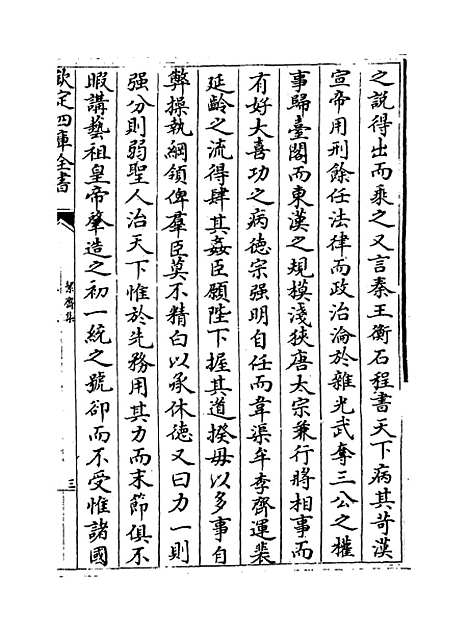 之說得出而乘之又言秦王衡石程書天下病其苛漢
宣帝用刑餘任法律而政治淪於雜光武奪三公之權
事歸臺閣而東漢之規模淺狹唐太宗兼行將相事而
有好大喜功之病徳宗强明自任而韋渠牟李齊運裴
延齡之流得肆其姦臣願陛下握其道揆毋以多事自
弊操執綱領俾羣臣莫不精白以承休徳又曰力一則
强分則弱聖人治天下惟於先務用其力而末節俱不
暇講藝祖皇帝肇造之初一統之號卻而不受惟諸國
欽定四庫全書
絜齊集
三